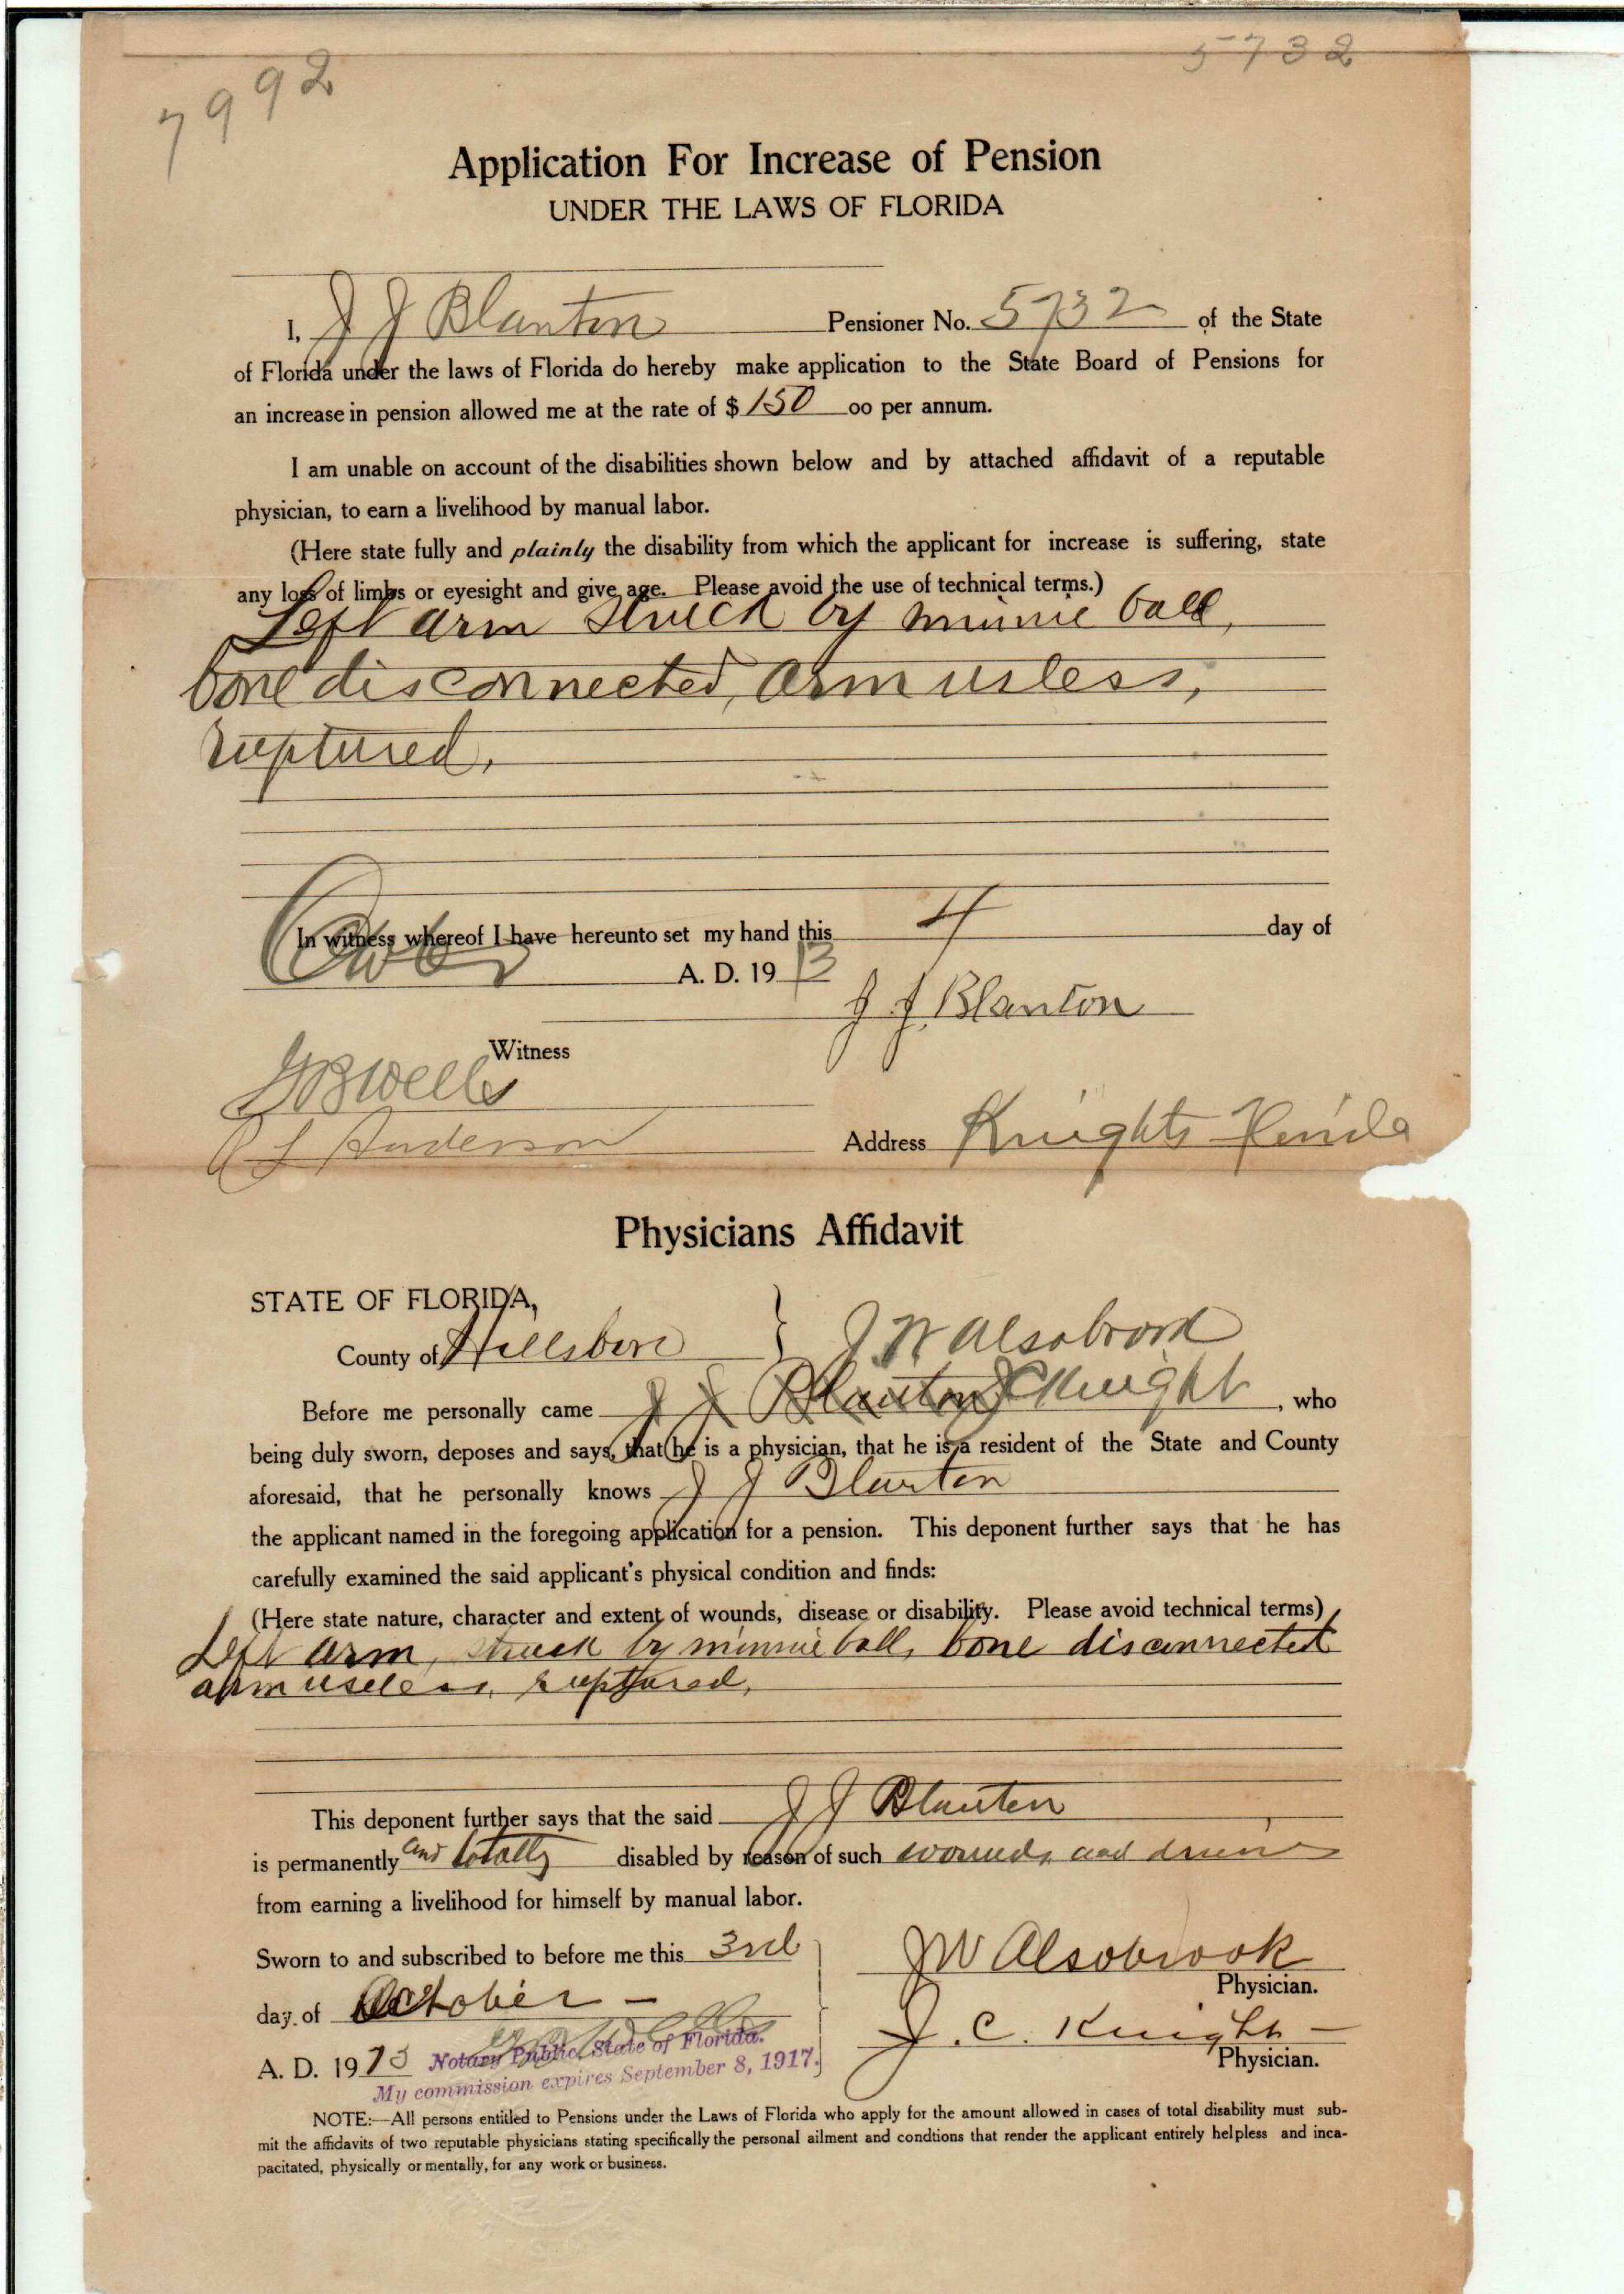 7992
5732
Application For Increase of Pension
UNDER THE LAWS OF FLORIDA
I, J J Blanton Pensioner No. 5732 of the State
of Florida under the laws of Florida do hereby make application to the State Board of Pensions for
an increase in pension allowed me at the rate of $ 150 oo per annum.
I am unable on account of the disabilities shown below and by attached affidavit of a reputable
physician, to earn a livelihood by manual labor.
(Here state fully and plainly the disability from which the applicant for increase is suffering, state
any loss of limbs or eyesight and give age. Please avoid the use of technical terms.)
Left arm struck by minnie ball,
bone disconnected, arm usless,
ruptured,
In witness whereof I have hereunto set my hand this 4 day of
A. D. 19 13
J J Blanton
Witness
G B Wells
Anderson
Address Knights Florida
Physicians Affidavit
STATE OF FLORIDA,
County of Hillsboro } J W Alsobrook
Before me personally came J J Blanton J C Knight, who
being duly sworn, deposes and says, that he is a physician, that he is a resident of the State and County
aforesaid, that he personally knows J J Blanton
the applicant named in the foregoing application for a pension. This deponent further says that he has
carefully examined the said applicant's physical condition and finds:
(Here state nature, character and extent of wounds, disease or disability. Please avoid technical terms)
Left arm, struck by minnie ball, bone disconnected
arm useless, ruptured,
This deponent further says that the said J J Blanton
is permanently and totally disabled by reason of such wounds and
from earning a livelihood for himself by manual labor.
Sworn to and subscribed to before me this 3rd
J W Alsobrook
Physician.
day of October -
J. C. Knight -
Physician.
A. D. 1913 Notary Public, State of Florida.
My commission expires September 8, 1917.
NOTE:—All persons entitled to Pensions under the Laws of Florida who apply for the amount allowed in cases of total disability must sub-
mit the affidavits of two reputable physicians stating specifically the personal ailment and condtions that render the applicant entirely helpless and inca-
pacitated, physically or mentally, for any work or business.